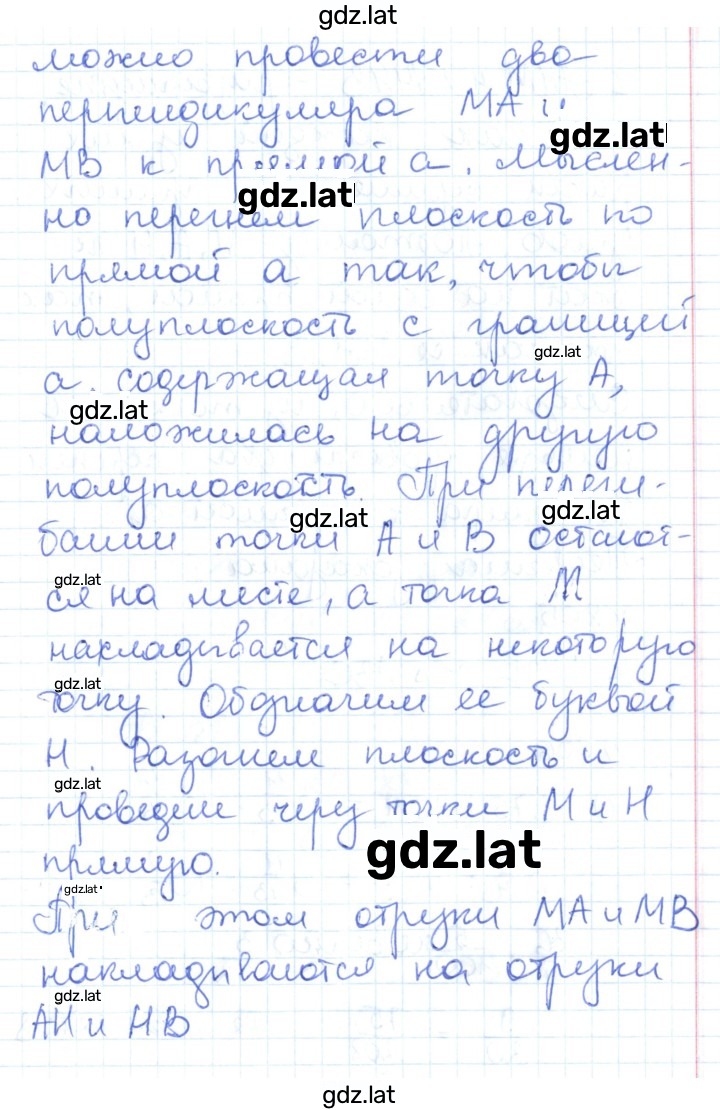 gdz.lat
можно провести два
перпендикуляра МА и
gdz.lat
МВ к прямой а. Мыслен-
gdz.lat
но перегнем плоскость по
прямой а так, чтобы
полуплоскость с границей
gdz.lat
а. содержащая точку А,
gdz.lat
наложилась на другую
полуплоскость. При перегин-
gdz.lat
gdz.lat
бании точки А и В остают-
gdz.lat
ся на месте, а точка М
накладывается на некоторую
gdz.lat
точку. Обозначим ее буквой
Н. Разогнем плоскость и
gdz.lat
проведем через точки М и Н
gdz.lat
прямую.
gdz.lat
При этом отрезки МА и МВ
накладываются на отрезки
gdz.lat
АН и НВ
gdz.lat